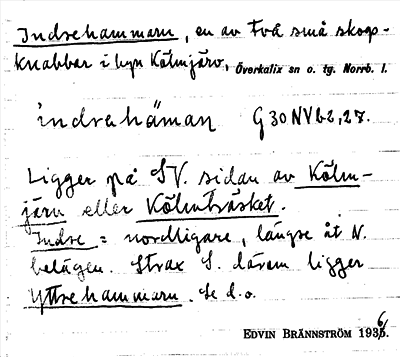 Indrehammarn, en av två små skogs-
knabbar i byn Kölmjärv, Överkalix sn o. tg. Norrb. l.
indrahäman G 30 NV b2, 27.
Ligger på SV. sidan av Kölm-
järv eller Kölmträsket.
Indre = nordligare, längre åt N.
belägen. Strax S. därom ligger
Yttrehammarn. Se d.o.
EDVIN BRÄNNSTRÖM 1936.